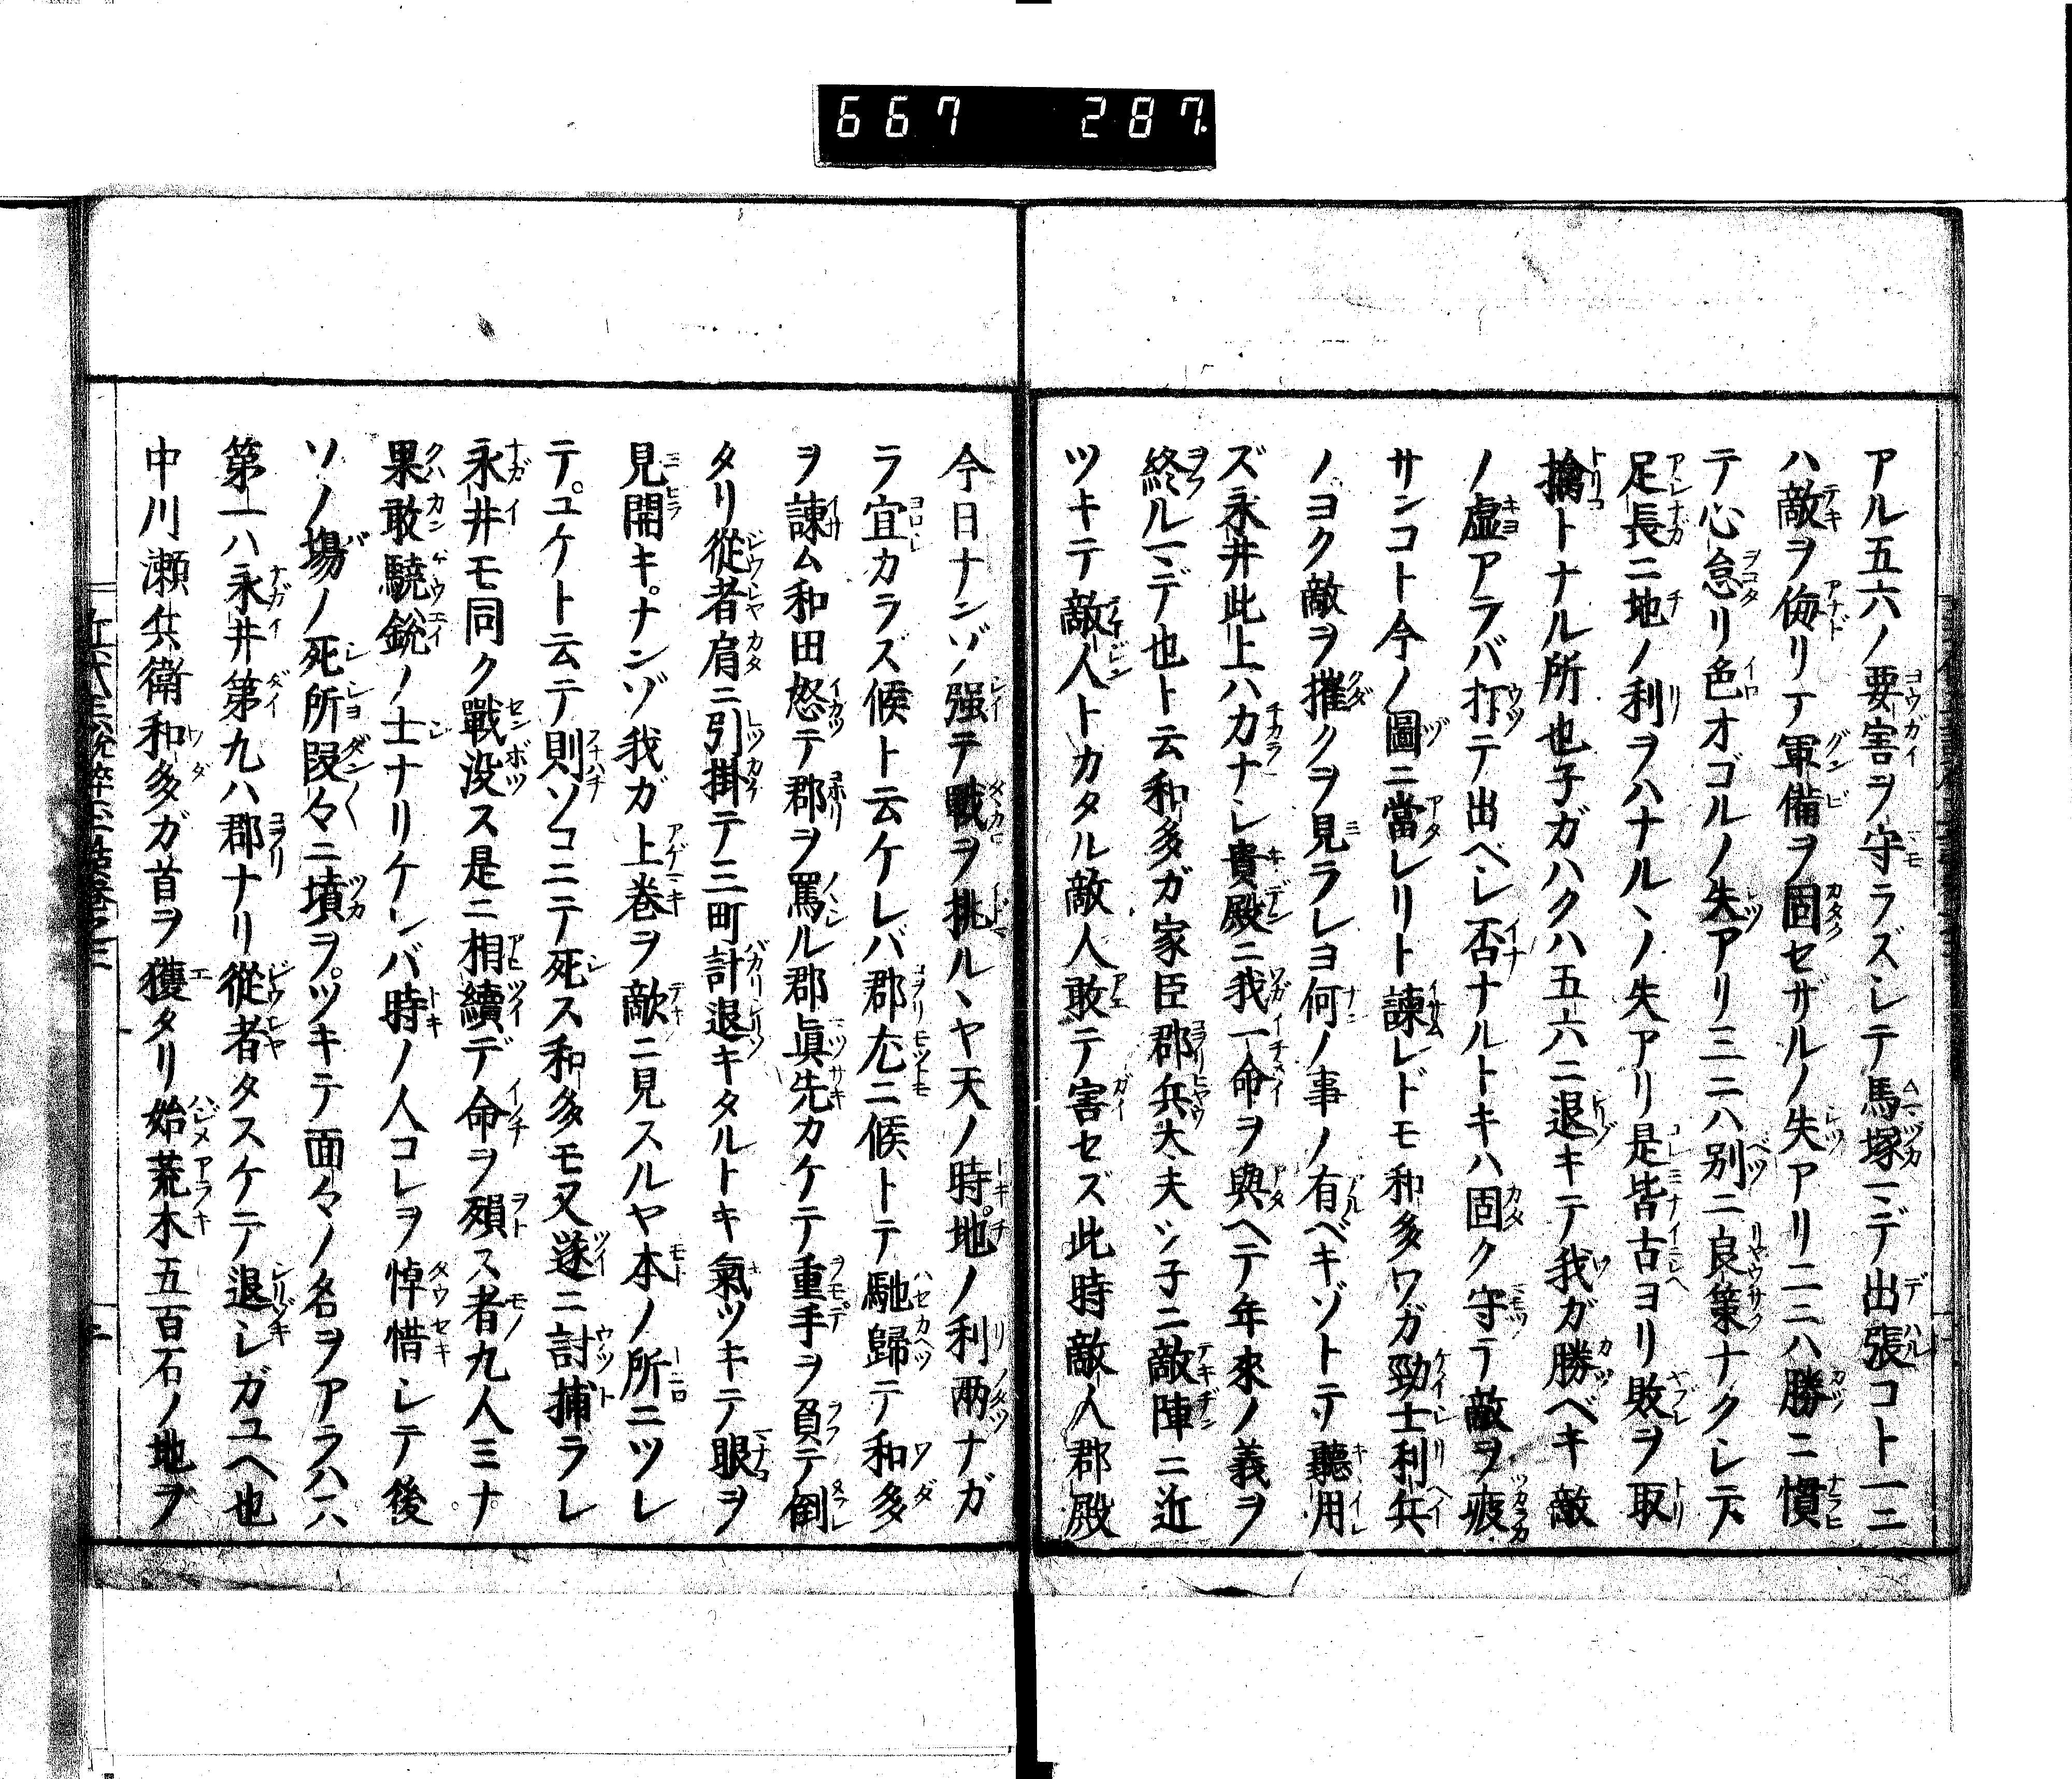 667 287
アル五六ノ要害ヲ守ラズシテ馬塚マデ出張コト一三
ハ敵ヲ侮リテ軍備ヲ固セザルノ失アリ二ニハ勝ニ慣
テ心怠リ色オゴルノ失アリ三ニハ別ニ良策ナクシテ
足長ニ地ノ利ヲハナルヽノ失アリ是皆古ヨリ敗ヲ取
擒トナル所也子ガハクハ五六ニ退キテ我ガ勝ベキ敵
ノ虚アラバ打テ出ベシ否ナルトキハ固ク守テ敵ヲ疲
サンコト今ノ圖ニ當レリト諫レドモ和多ワガ勁士利兵
ノヨク敵ヲ摧クヲ見ラレヨ何ノ事ノ有ベキゾトテ聽用
ズ永井此上ハカナシ貴殿ニ我一命ヲ與ヘテ年來ノ義ヲ
終ルマデ也ト云和多ガ家臣郡兵太夫ジ子ニ敵陣ニ近
ツキテ敵人トカタル敵人敢テ害セズ此時敵人郡殿
今日ナンゾ强テ戰ヲ挑ルヽヤ天ノ時地ノ利兩ナガ
ラ宜カラズ候ト云ケレバ郡尤ニ候トテ馳歸テ和多
ヲ諫ム和田怒テ郡ヲ罵ル郡眞先カケテ重手ヲ負テ倒
タリ從者肩ニ引掛テ三町計退キタルトキ氣ツキテ眼ヲ
見開キナンゾ我ガ上巻ヲ敵ニ見スルヤ本ノ所ニツレ
テユケト云テ則ソコニテ死ス和多モ又遂ニ討捕ラレ
永井モ同ク戰没ス是ニ相續デ命ヲ殞ス者九人ミナ
果敢驍鋭ノ士ナリケンバ時ノ人コレヲ悼惜シテ後
ソノ塲ノ死所段々ニ墳ヲツキテ面々ノ名ヲアラハス
第一ハ永井第九ハ郡ナリ從者タスケテ退シガユヘ也
中川瀬兵衛和多ガ首ヲ獲タリ始荒木五百石ノ地ヲ